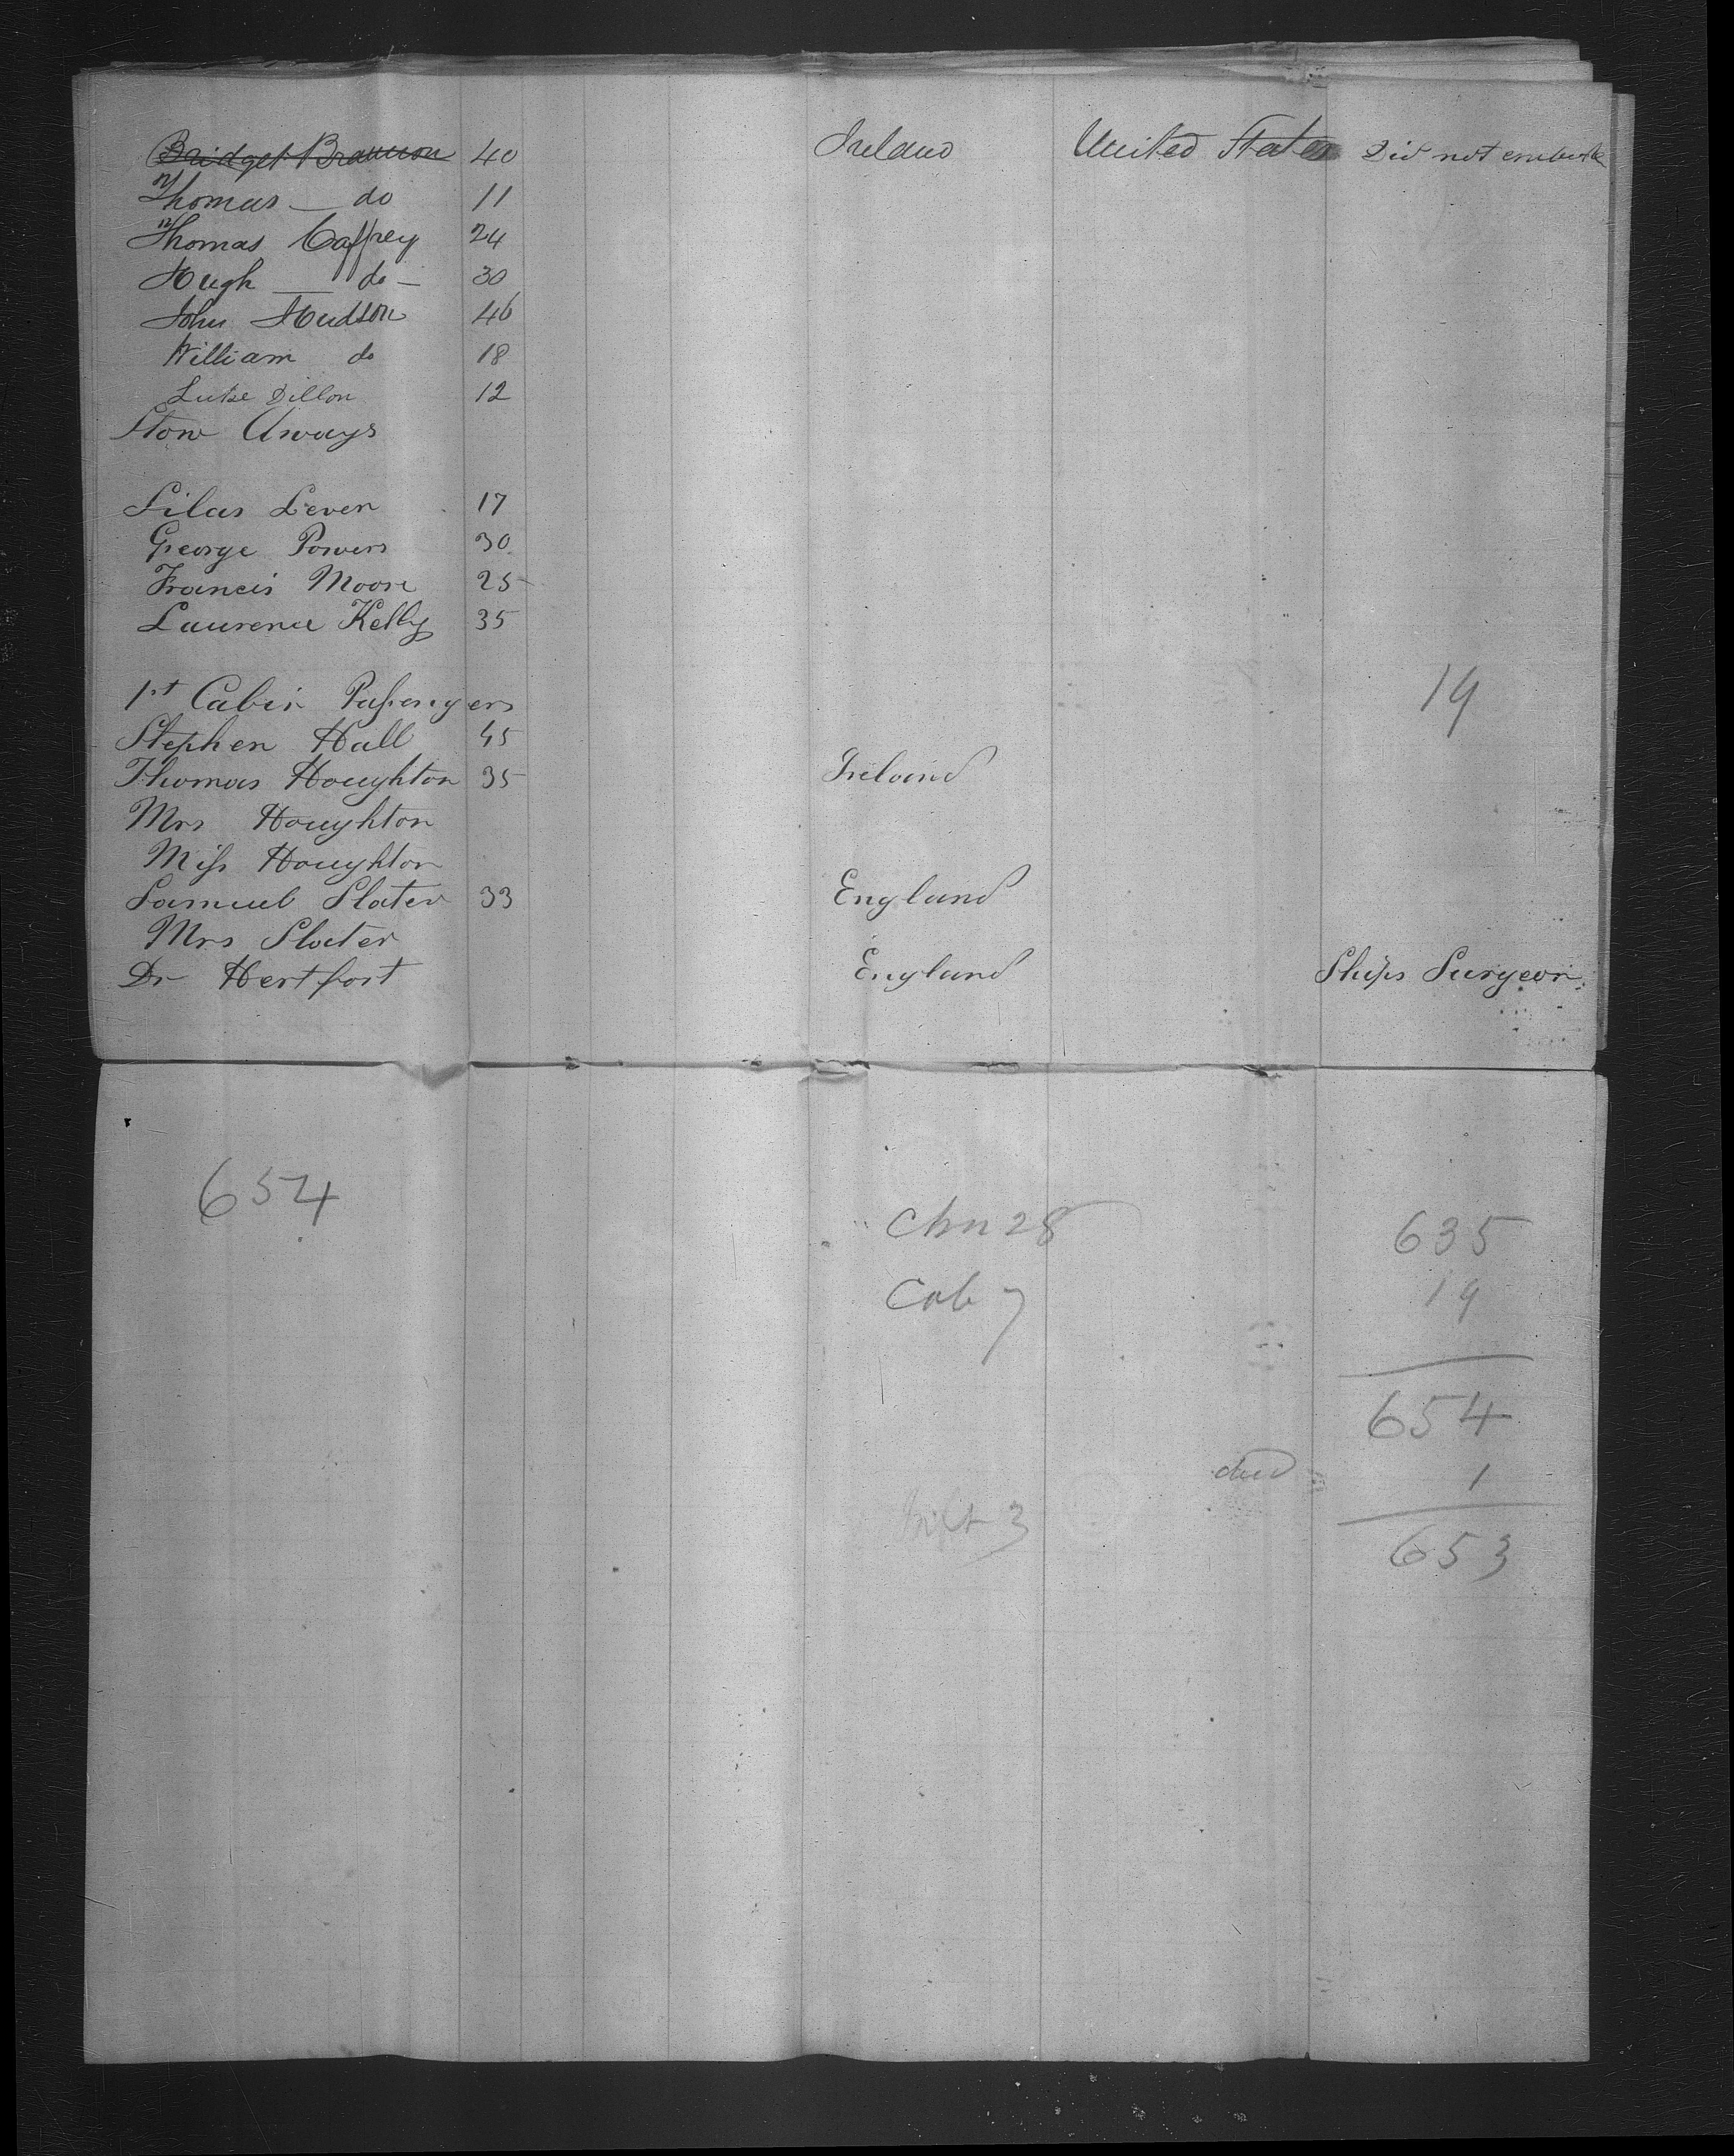 Bridget Brannon 40 Ireland United States Did not embark
Thomas — do 11
Thomas Caffrey 24
Hugh — do — 30
John Hudson 46
William do 18
Luke Dillon 12
Stow Aways
Silas Lever 17
George Powers 30
Francis Moore 25
Laurence Kelly 35
19
1st Cabin Passengers
Stephen Hall 45
Thomas Houghton 35 Ireland
Mrs Houghton
Miss Houghton
Samuel Slater 33 England
Mrs Slater
Dr Hertfort England Ships Surgeon
654
Chn 28
635
Cab 7
19
654
died 1
3
653